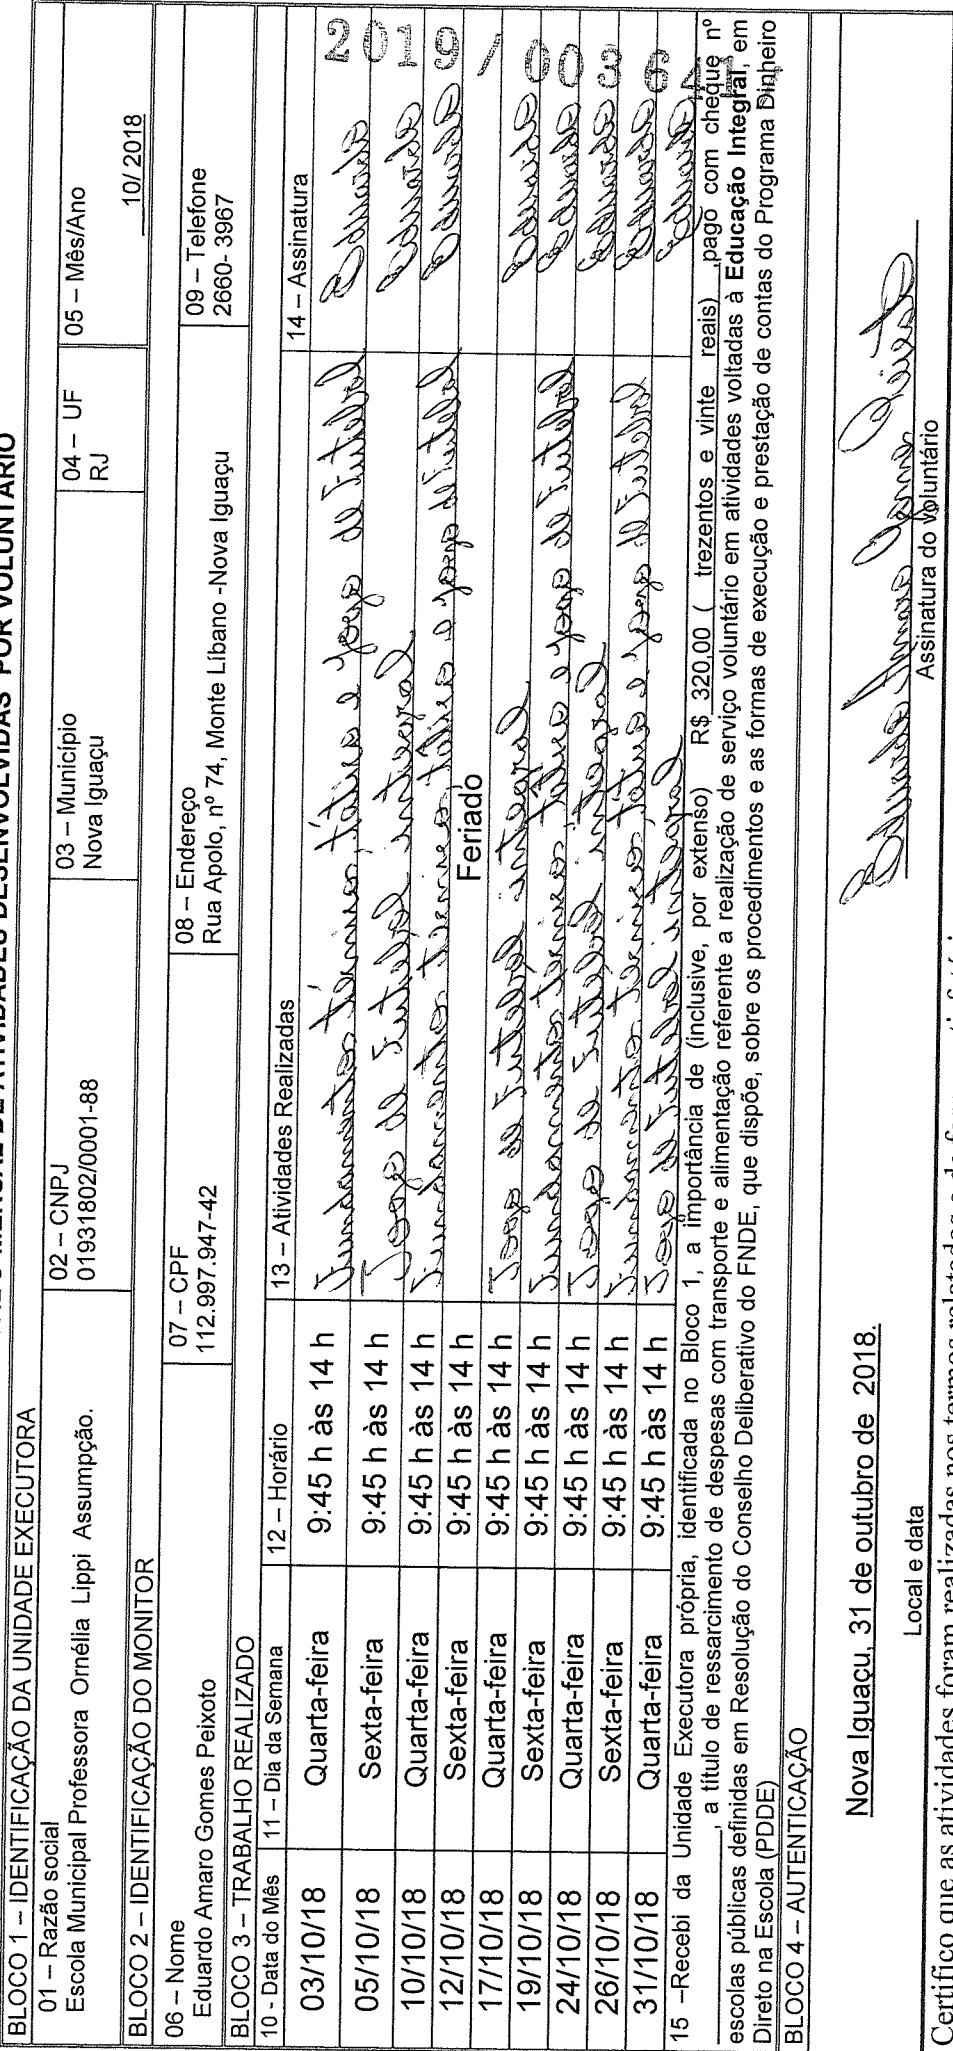 BLOCO 1 – IDENTIFICAÇÃO DA UNIDADE EXECUTORA
01 – Razão social
Escola Municipal Professora Ornélia Lippi Assumpção.
02 – CNPJ
01931802/0001-88
03 – Município
Nova Iguaçu
04 – UF
RJ
05 – Mês/Ano
10/ 2018
BLOCO 2 – IDENTIFICAÇÃO DO MONITOR
06 – Nome
Eduardo Amaro Gomes Peixoto
07 – CPF
112.997.947-42
08 – Endereço
Rua Apolo, nº 74, Monte Líbano -Nova Iguaçu
09 – Telefone
2660- 3967
BLOCO 3 – TRABALHO REALIZADO
10 - Data do Mês 11 – Dia da Semana 12 – Horário 13 – Atividades Realizadas 14 – Assinatura
2019/00364
03/10/18 Quarta-feira 9:45 h às 14 h Fundamentos técnicos táticos e jogo de futebol Eduardo
05/10/18 Sexta-feira 9:45 h às 14 h Jogo de futebol integral Eduardo
10/10/18 Quarta-feira 9:45 h às 14 h Fundamentos técnicos tático e jogo de futebol Eduardo
12/10/18 Sexta-feira 9:45 h às 14 h Feriado
17/10/18 Quarta-feira 9:45 h às 14 h Jogo de futebol integral Eduardo
19/10/18 Sexta-feira 9:45 h às 14 h Fundamentos técnicos táticos e jogo de futebol Eduardo
24/10/18 Quarta-feira 9:45 h às 14 h Jogo de futebol integral Eduardo
26/10/18 Sexta-feira 9:45 h às 14 h Fundamentos técnicos táticos e jogo de futebol Eduardo
31/10/18 Quarta-feira 9:45 h às 14 h Jogo de futebol integral Eduardo
15 –Recebi da Unidade Executora própria, identificada no Bloco 1, a importância de (inclusive, por extenso) R$ 320,00 ( trezentos e vinte reais) ,pago com cheque nº
, a título de ressarcimento de despesas com transporte e alimentação referente a realização de serviço voluntário em atividades voltadas à Educação Integral, em
escolas públicas definidas em Resolução do Conselho Deliberativo do FNDE, que dispõe, sobre os procedimentos e as formas de execução e prestação de contas do Programa Dinheiro
Direto na Escola (PDDE)
BLOCO 4 – AUTENTICAÇÃO
Nova Iguaçu, 31 de outubro de 2018.
Local e data
Eduardo Amaro Gomes Peixoto
Assinatura do voluntário